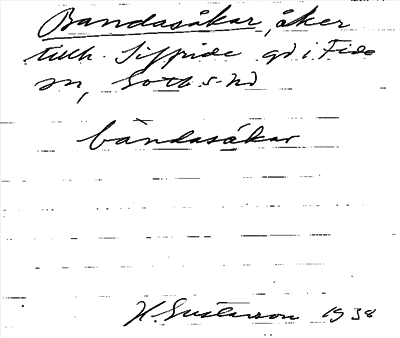 Bandasåkar, åker
tillh. Siffride gd i Fide
sn, Gotl. s. hd
bàndasåkar
H. Gustavson 1938